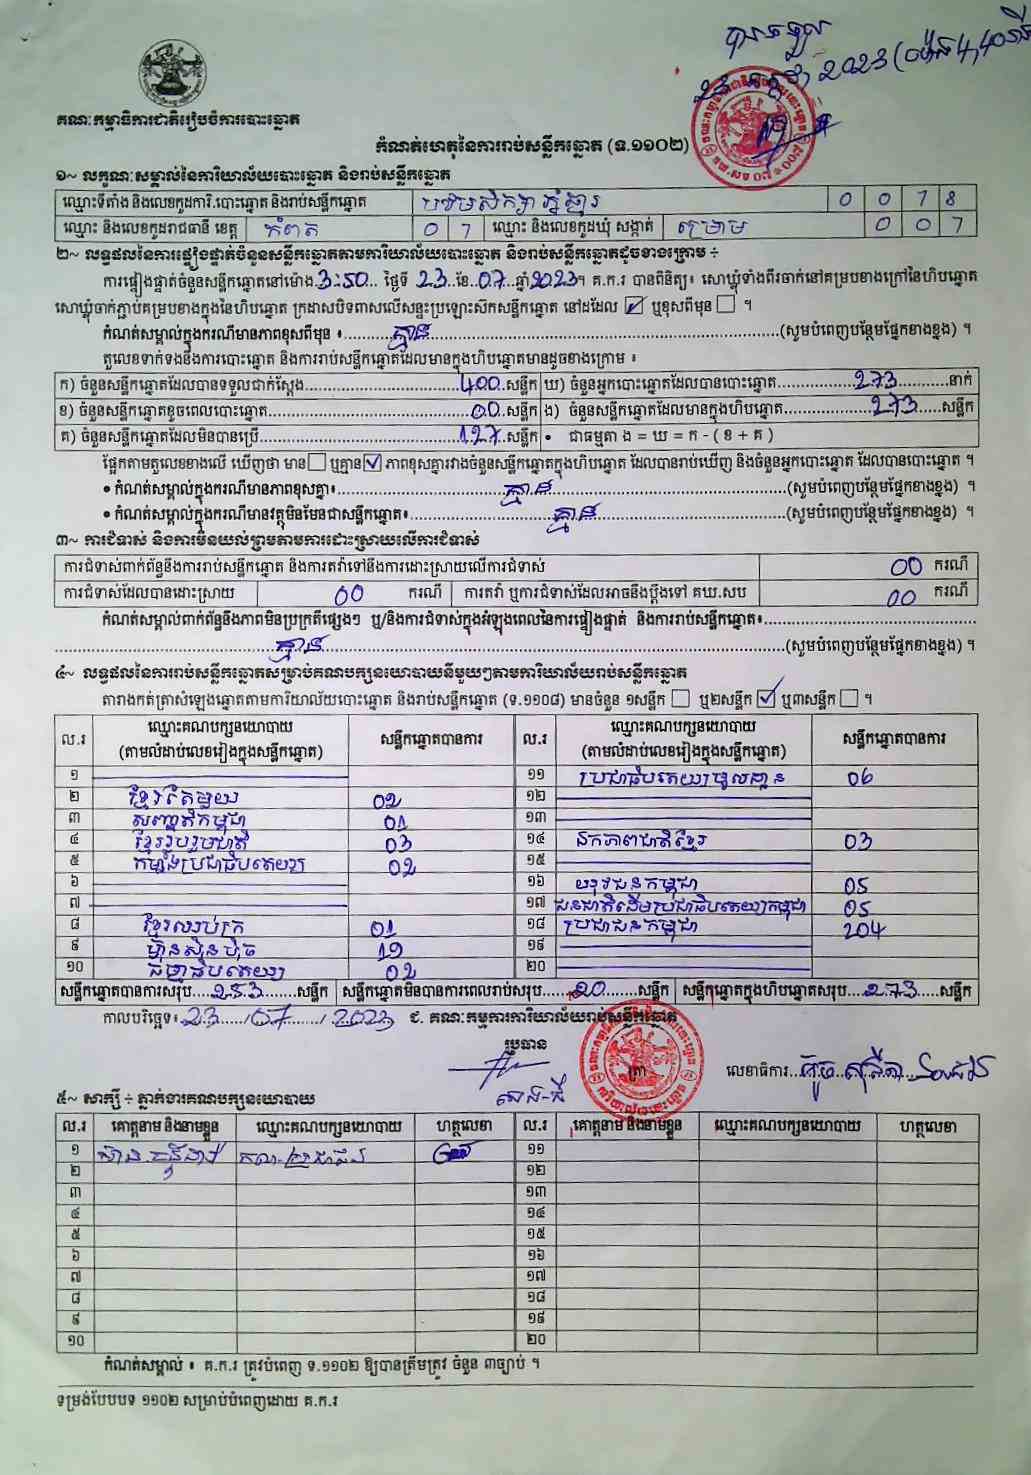 បានទទួល
23 កក្កដា 2023 (ម៉ោង 4,40នាទី
គណៈកម្មាធិការជាតិរៀបចំការបោះឆ្នោត
កំណត់ហេតុនៃការរាប់សន្លឹកឆ្នោត (ទ.១១០២)
១~ លក្ខណៈសម្គាល់នៃការិយាល័យបោះឆ្នោត និងរាប់សន្លឹកឆ្នោត
ឈ្មោះទីតាំង និងលេខកូដការិ.បោះឆ្នោត និងរាប់សន្លឹកឆ្នោត បឋមសិក្សា 0 0 7 8
ឈ្មោះ និងលេខកូដរាជធានី ខេត្ត កំពត 0 7 ឈ្មោះ និងលេខកូដឃុំ សង្កាត់ 0 0 7
២~ លទ្ធផលនៃការផ្ទៀងផ្ទាត់ចំនួនសន្លឹកឆ្នោតតាមការិយាល័យបោះឆ្នោត និងរាប់សន្លឹកឆ្នោតដូចខាងក្រោម ÷
ការផ្ទៀងផ្ទាត់ចំនួនសន្លឹកឆ្នោតនៅម៉ោង 3:50 ថ្ងៃទី 23 ខែ 07 ឆ្នាំ 2023។ គ.ក.រ បានពិនិត្យ៖ សោឃ្លុំទាំងពីរចាក់នៅគម្របខាងក្រៅនៃហិបឆ្នោត
សោឃ្លុំចាក់ភ្ជាប់គម្របខាងក្នុងនៃហិបឆ្នោត ក្រដាសបិទពាសលើសន្ទះប្រឡោះស៊កសន្លឹកឆ្នោត នៅដដែល ☑ ឬខុសពីមុន ☐ ។
កំណត់សម្គាល់ក្នុងករណីមានភាពខុសពីមុន ៖ គ្មាន (សូមបំពេញបន្ថែមផ្នែកខាងខ្នង) ។
តួលេខទាក់ទងនឹងការបោះឆ្នោត និងការរាប់សន្លឹកឆ្នោតដែលមានក្នុងហិបឆ្នោតមានដូចខាងក្រោម ៖
ក) ចំនួនសន្លឹកឆ្នោតដែលបានទទួលជាក់ស្តែង 400 សន្លឹក ឃ) ចំនួនអ្នកបោះឆ្នោតដែលបានបោះឆ្នោត 273 នាក់
ខ) ចំនួនសន្លឹកឆ្នោតខូចពេលបោះឆ្នោត 00 សន្លឹក ង) ចំនួនសន្លឹកឆ្នោតដែលមានក្នុងហិបឆ្នោត 273 សន្លឹក
គ) ចំនួនសន្លឹកឆ្នោតដែលមិនបានប្រើ 127 សន្លឹក • ជាធម្មតា ង = ឃ = ក - ( ខ + គ )
ផ្អែកតាមតួលេខខាងលើ ឃើញថា មាន ☐ ឬគ្មាន ☑ ភាពខុសគ្នារវាងចំនួនសន្លឹកឆ្នោតក្នុងហិបឆ្នោត ដែលបានរាប់ឃើញ និងចំនួនអ្នកបោះឆ្នោត ដែលបានបោះឆ្នោត ។
• កំណត់សម្គាល់ក្នុងករណីមានភាពខុសគ្នា៖ គ្មាន (សូមបំពេញបន្ថែមផ្នែកខាងខ្នង) ។
• កំណត់សម្គាល់ក្នុងករណីមានវត្ថុមិនមែនជាសន្លឹកឆ្នោត៖ គ្មាន (សូមបំពេញបន្ថែមផ្នែកខាងខ្នង) ។
៣~ ការជំទាស់ និងការមិនយល់ព្រមតាមការដោះស្រាយលើការជំទាស់
ការជំទាស់ពាក់ព័ន្ធនឹងការរាប់សន្លឹកឆ្នោត និងការតវ៉ាទៅនឹងការដោះស្រាយលើការជំទាស់ 00 ករណី
ការជំទាស់ដែលបានដោះស្រាយ 00 ករណី ការតវ៉ា ឬការជំទាស់ដែលអាចនឹងប្តឹងទៅ គឃ.សប 00 ករណី
កំណត់សម្គាល់ពាក់ព័ន្ធនឹងភាពមិនប្រក្រតីផ្សេងៗ ឬ/និងការជំទាស់ក្នុងអំឡុងពេលនៃការផ្ទៀងផ្ទាត់ និងការរាប់សន្លឹកឆ្នោត៖
គ្មាន (សូមបំពេញបន្ថែមផ្នែកខាងខ្នង) ។
៤~ លទ្ធផលនៃការរាប់សន្លឹកឆ្នោតសម្រាប់គណបក្សនយោបាយនីមួយៗតាមការិយាល័យរាប់សន្លឹកឆ្នោត
តារាងកត់ត្រាសំឡេងឆ្នោតតាមការិយាល័យបោះឆ្នោត និងរាប់សន្លឹកឆ្នោត (ទ.១១០៨) មានចំនួន ១សន្លឹក ☐ ឬ២សន្លឹក ☑ ឬ៣សន្លឹក ☐ ។
ល.រ ឈ្មោះគណបក្សនយោបាយ (តាមលំដាប់លេខរៀងក្នុងសន្លឹកឆ្នោត) សន្លឹកឆ្នោតបានការ ល.រ ឈ្មោះគណបក្សនយោបាយ (តាមលំដាប់លេខរៀងក្នុងសន្លឹកឆ្នោត) សន្លឹកឆ្នោតបានការ
១ ១១ ប្រជាធិបតេយ្យមូលដ្ឋាន 06
២ ខ្មែរតែមួយ 02 ១២
៣ សញ្ជាតិកម្ពុជា 01 ១៣
៤ ខ្មែររួបរួមជាតិ 03 ១៤ ឯកភាពជាតិខ្មែរ 03
៥ កម្លាំងប្រជាធិបតេយ្យ 02 ១៥
៦ ១៦ យុវជនកម្ពុជា 05
៧ ១៧ ជនជាតិដើមប្រជាធិបតេយ្យកម្ពុជា 05
៨ ខ្មែរឈប់ក្រ 01 ១៨ ប្រជាជនកម្ពុជា 204
៩ ហ្វ៊ុនស៊ិនប៉ិច 19 ១៩
១០ ធម្មាធិបតេយ្យ 02 ២០
សន្លឹកឆ្នោតបានការសរុប 253 សន្លឹក សន្លឹកឆ្នោតមិនបានការពេលរាប់សរុប 20 សន្លឹក សន្លឹកឆ្នោតក្នុងហិបឆ្នោតសរុប 273 សន្លឹក
កាលបរិច្ឆេទ៖ 23 / 07 / 2023 ជ. គណៈកម្មការការិយាល័យរាប់សន្លឹកឆ្នោត
ប្រធាន
ត្រា
លេខាធិការ
៥~ សាក្សី ÷ ភ្នាក់ងារគណបក្សនយោបាយ
ល.រ គោត្តនាម និងនាមខ្លួន ឈ្មោះគណបក្សនយោបាយ ហត្ថលេខា ល.រ គោត្តនាម និងនាមខ្លួន ឈ្មោះគណបក្សនយោបាយ ហត្ថលេខា
១ ១១
២ ១២
៣ ១៣
៤ ១៤
៥ ១៥
៦ ១៦
៧ ១៧
៨ ១៨
៩ ១៩
១០ ២០
កំណត់សម្គាល់ ៖ គ.ក.រ ត្រូវបំពេញ ទ.១១០២ ឱ្យបានត្រឹមត្រូវ ចំនួន ៣ច្បាប់ ។
ទម្រង់បែបបទ ១១០២ សម្រាប់បំពេញដោយ គ.ក.រ